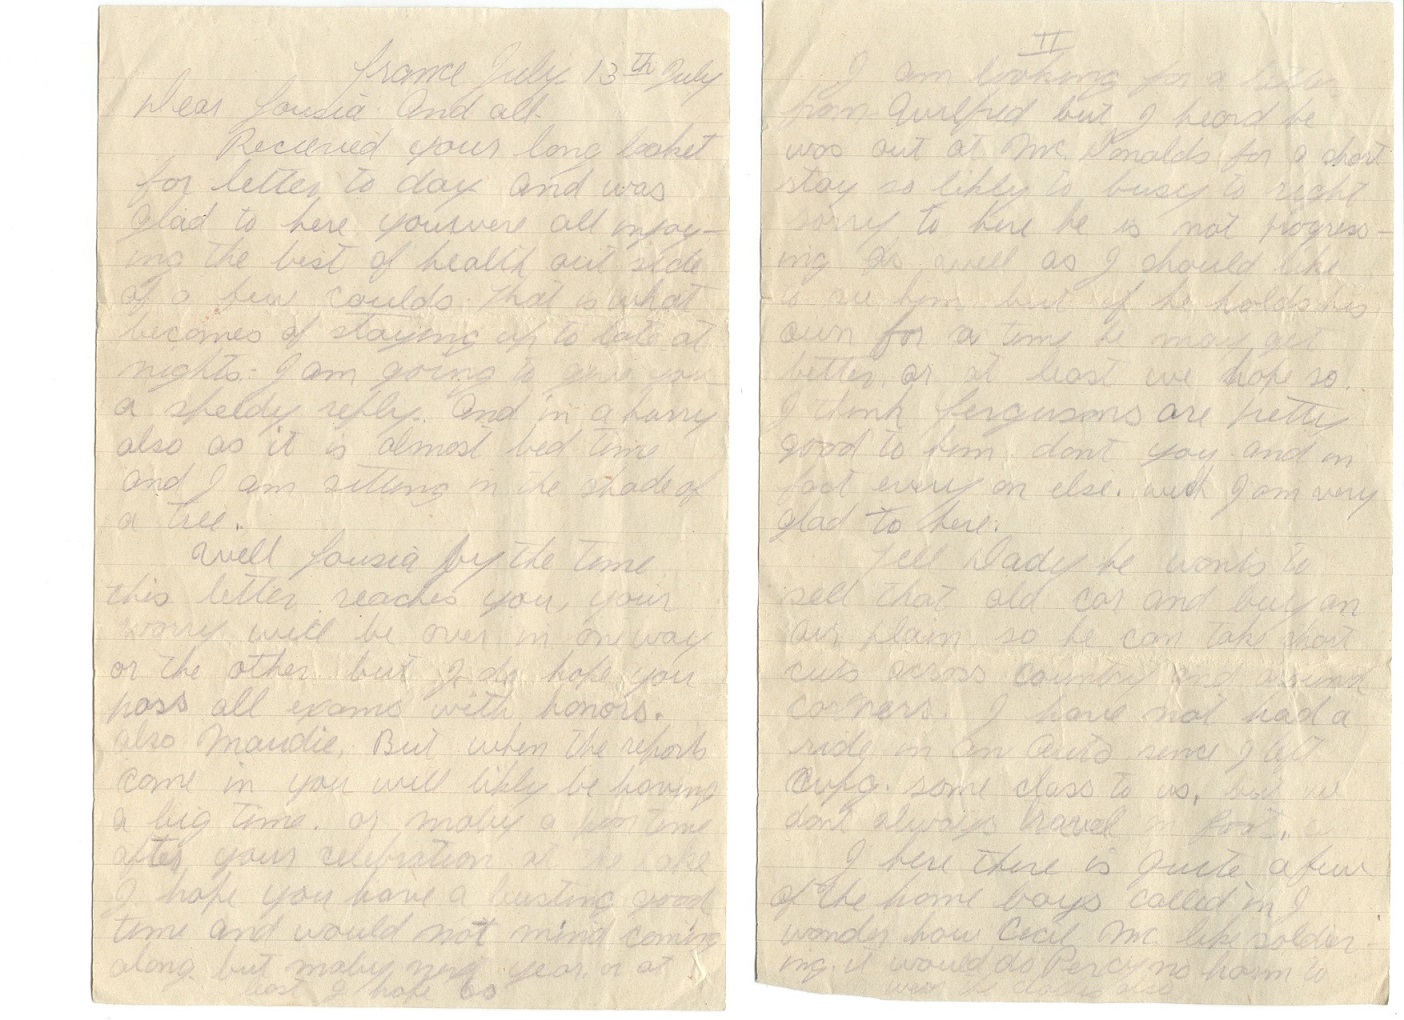 france July 13th July
Dear Lousia And all.
Recieved your long looket
for letter to day and was
glad to here you were all injoy-
ing the best of health out side
of a few coulds. That is what
becomes of staying up to late at
nights. I am going to give you
a speedy reply. And in a hurry
also as it is almost bed time
and I am sitting in the shade of
a tree.
Well Lousia by the time
this letter reaches you, your
worry will be over in one way
or the other but I do hope you
pass all exams with honors.
also Maudie. But when the reports
come in you will likly be having
a big time. or maby a poor time
after your celebration at the lake
I hope you have a busting good
time and would not mind coming
along but maby next year. or at
least I hope so
II
I am looking for a letter
from Wilfred but I heard he
was out at Mc. Donalds for a short
stay so likly to busy to right
sorry to here he is not progress-
ing as well as I should like
to see him but if he holds his
own for a time he may get
better, or at least we hope so.
I think fergusons are pretty
good to him. dont you. and in
fact every on else. wich I am very
glad to here.
Tell Dady he wants to
sell that old car and buy an
air plain so he can take short
cuts across country and around
corners. I have not had a
ride in an auto since I left
some class to us, but we
dont always travel in
I here there is quite a few
of the home boys called in I
wonder how Cecil Mc. like solder-
ing. it would do Percy no harm to
wear the clothes also